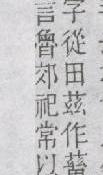 字從田茲作蕃
言魯郊祀常以